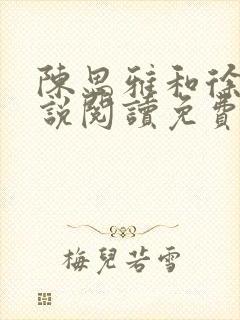 陳思雅和徐
說閱讀免費
梅兒若雪